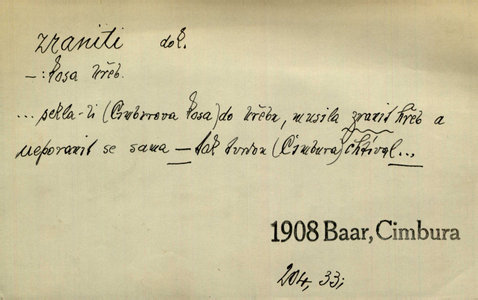 zraniti dok.
–: kosa hřeb.
... sekla-li (Cimburova kosa) do hřebu, musila zranit hřeb a
neporanit se sama – tak tvrdou (Cimbura) chtíval ...
1908 Baar, Cimbura
204, 33;